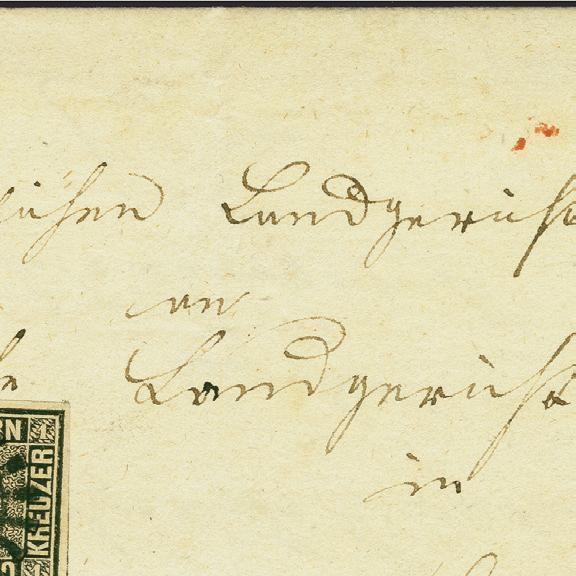 Landgericht
an
Landgericht
in
RN 1
KREUZER